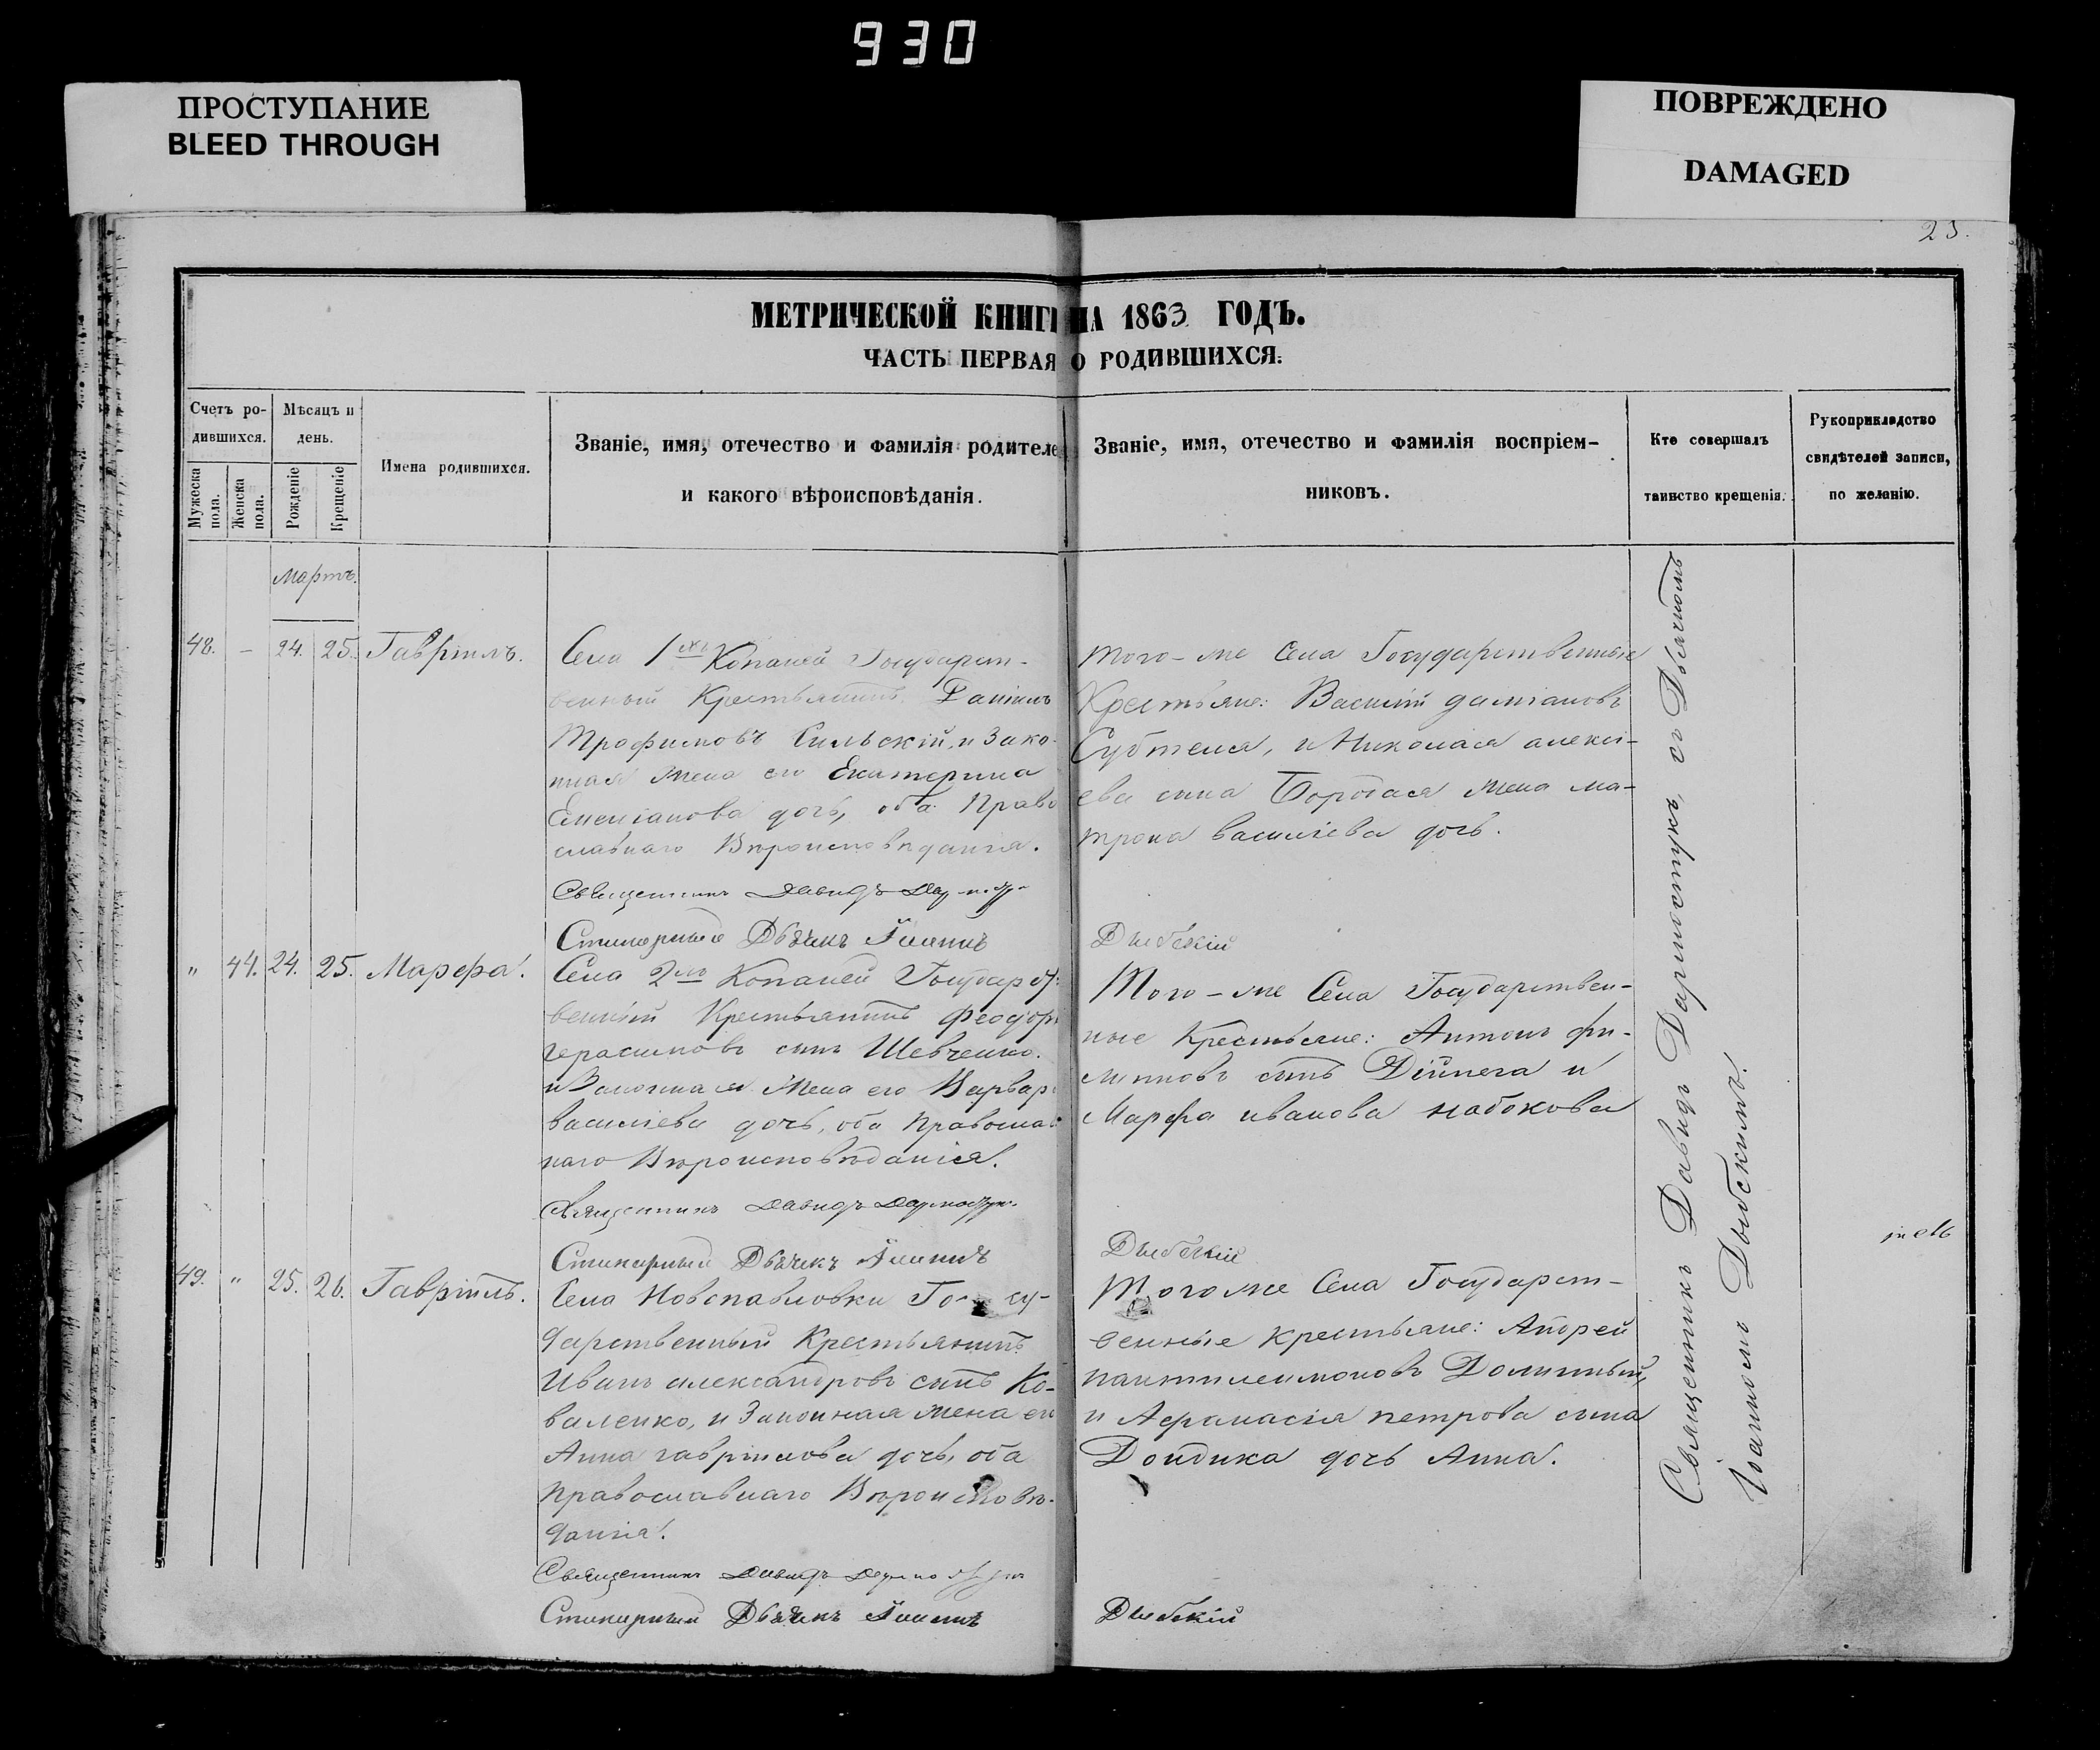 930
ПРОСТУПАНИЕ
BLEED THROUGH
ПОВРЕЖДЕНО
DAMAGED
23.
МЕТРИЧЕСКОЙ КНИГИ НА 1863 ГОДЪ.
ЧАСТЬ ПЕРВАЯ О РОДИВШИХСЯ.
Счетъ ро-
дившихся.
Мужеска
пола.
Женска
пола.
Мѣсяцъ и
день.
Рожденіе
Крещеніе
Имена родившихся.
Званіе, имя, отечество и фамилія родителе
и какого вѣроисповѣданія.
Званіе, имя, отечество и фамилія воспріем-
никовъ.
Кто совершалъ
таинство крещенія.
Рукоприкладство
свидѣтелей записи,
по желанію.
Мартъ.
48. – 24. 25. Гавріилъ.
Села 1хъ Копаней Государст-
венный Крестьянинъ Даніилъ
Трофимовъ Сильскій, и Зако-
нная жена его Екатерина
Емеліанова дочь, оба Право
славнаго Вѣроисповѣданія.
Священникъ Давидъ
Стихарный Дьячекъ Іоаннъ
Того-же Села Государственные
Крестьяне: Василій даміановъ
Субтеля, и Николая алексі-
ева сына Бородася жена ма-
трона василіева дочь.
Дыбскій
" 44. 24. 25. Марфа.
Села 2хъ Копаней Государст-
венный Крестьянинъ Феодоръ
герасимовъ сынъ Шевченко.
и Законная Жена его Варвара
василіева дочь, оба Православ
наго Вѣроисповѣданія.
Священникъ Давидъ Дармостук.
Стихарный Дьячекъ Іоаннъ
Того-же Села Государствен-
ные Крестьяне: Антонъ фи-
липповъ сынъ и
Марфа иванова набокова
Дыбскій
49. " 25. 26. Гавріилъ.
Села Новопавловки Госу-
дарственный Крестьянинъ
Иванъ александровъ сынъ Ко-
валенко, и Законная жена его
Анна гавріилова дочь, оба
православнаго Вѣроисповѣ-
данія.
Священникъ Давидъ
Стихарный Дьячекъ Іоаннъ
Тогоже Села Государст-
венные крестьяне: Андрей
пантилеимоновъ Долинный,
и Афанасія петрова сына
Дондика дочь Анна.
Дыбскій
Священникъ Давидъ Дармостукъ, съ Дьячкомъ
Іоанномъ Дыбскимъ.